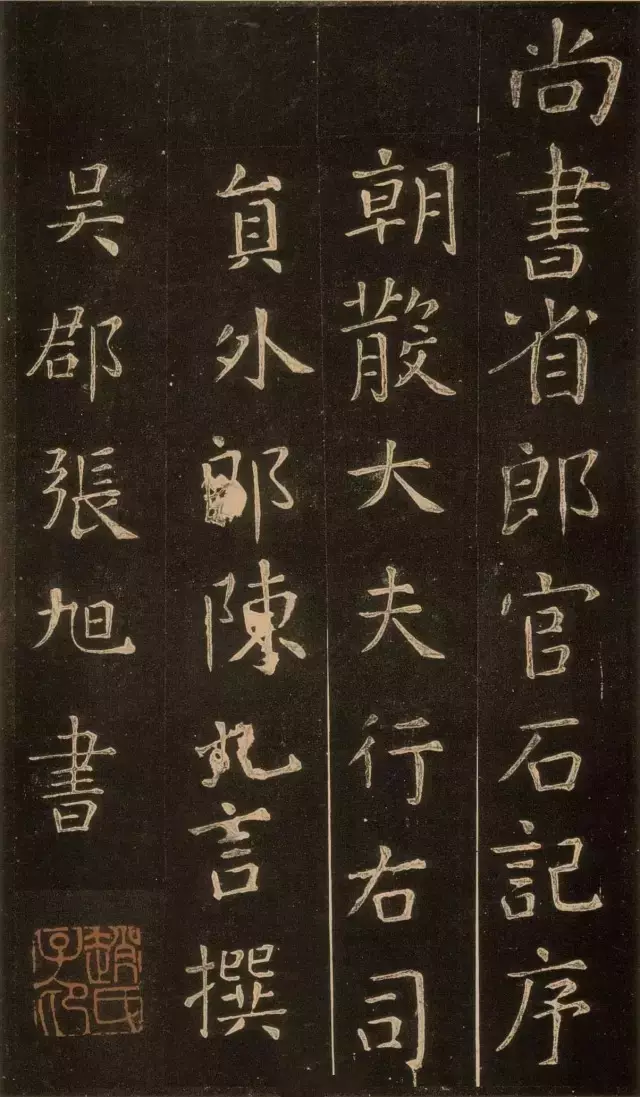 尚書省郎官石記序
朝散大夫行右司
貟外郎陳九言撰
吴郡張旭書
趙氏子